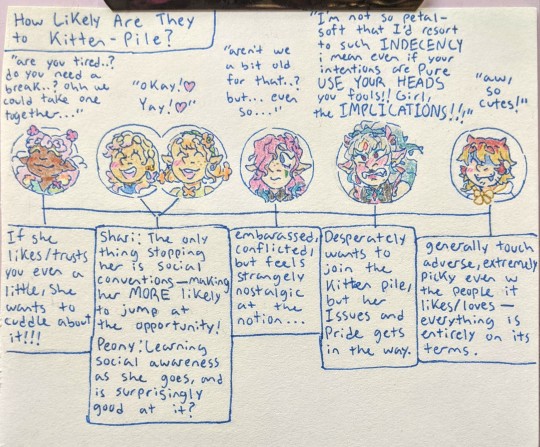 How Likely Are They
to Kitten-Pile?
"are you tired..?
do you need a
break..? ohh we
could take one
together..."
"oKay!♡
Yay!♡"
"aren't we
a bit old
for that..?
but... even
so..."
"I'm not so petal-
soft that I'd resort
to such INDECENCY
i mean even if your
intentions are pure
USE YOUR HEADS
you fools!! Girl,
the IMPLICATIONS!!,"
"aw,
so
cutes!"
If she
likes/trusts
you even a
little, she
wants to
cuddle about
it!!!
Shari: The only
thing stopping
her is social
conventions—making
her MORE likely
to jump at
the opportunity!
Peony: Learning
social awareness
as she goes, and
is surprisingly
good at it?
embarassed,
conflicted,
but feels
strangely
nostalgic
at the
notion...
Desperately
wants to
join the
Kitten pile,
but her
Issues and
Pride gets
in the way.
generally touch
adverse, extremely
picky even w
the people it
likes/loves—
everything is
entirely on its
terms.